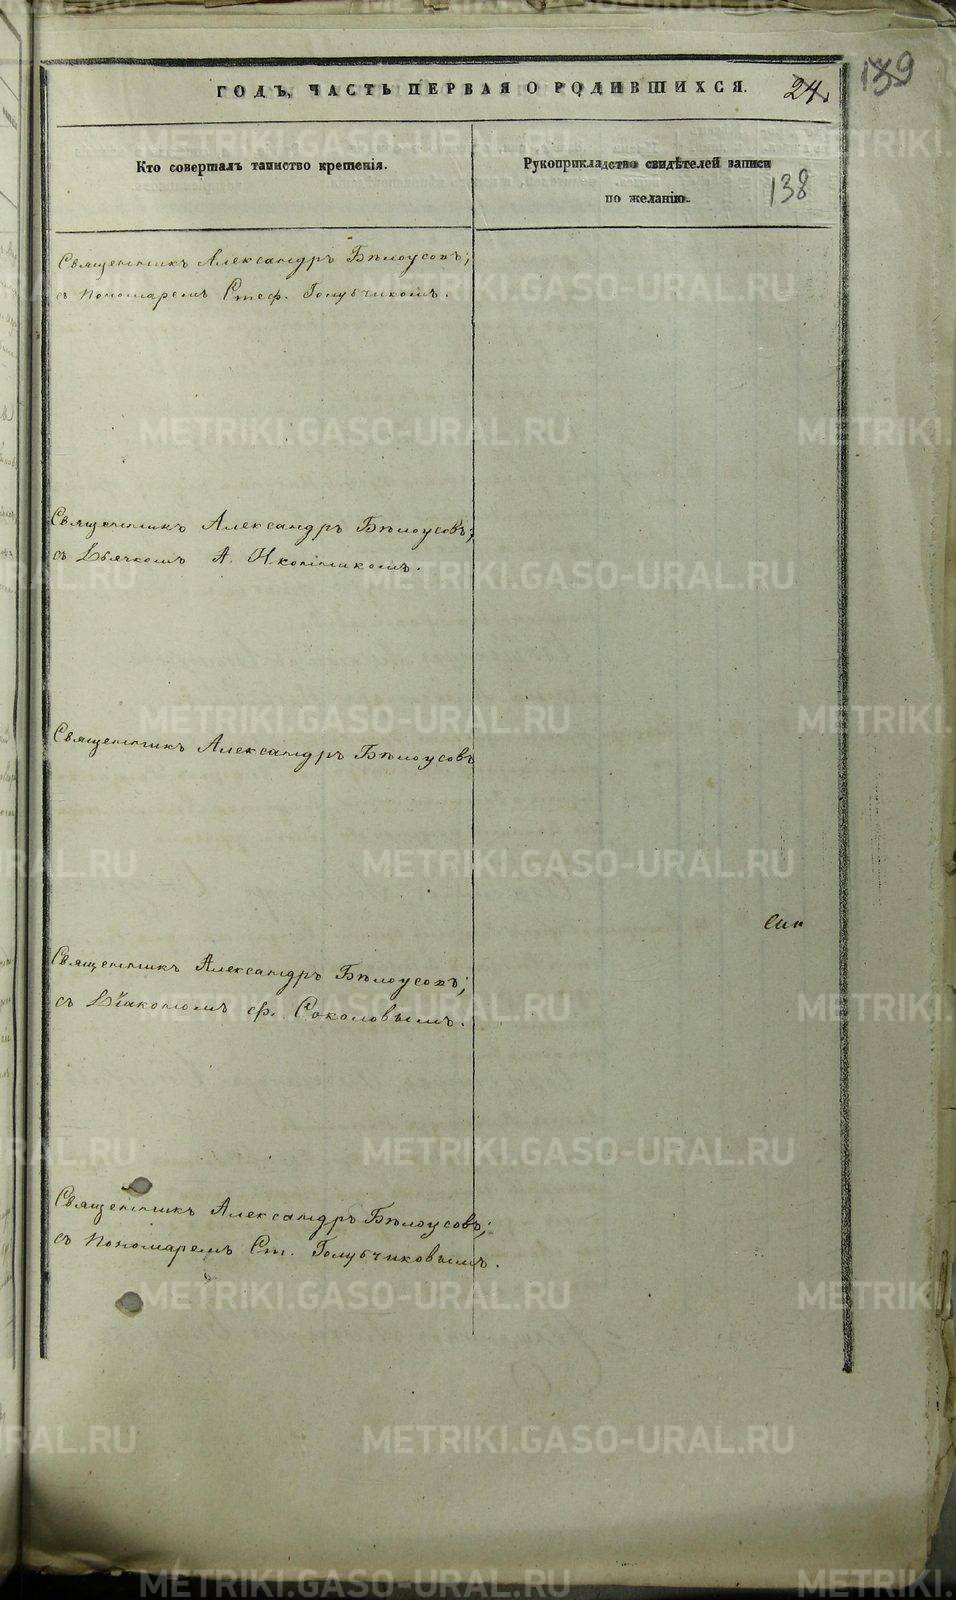 139
ГОДЪ, ЧАСТЬ ПЕРВАЯ О РОДИВШИХСЯ. 24.
Кто совершалъ таинство крещенія.
Рукоприкладство свидѣтелей записи
по желанію.
138
Священникъ Александръ Бѣлоусовъ;
съ Пономаремъ Стеф. Голубчиком.
Священникъ Александръ Бѣлоусовъ;
съ Дьячкомъ А.
Священникъ Александръ Бѣлоусовъ
Священникъ Александръ Бѣлоусовъ;
съ Діакономъ Соколовымъ.
Священникъ Александръ Бѣлоусовъ;
съ Пономаремъ Ст. Голубчиковымъ.
METRIKI.GASO-URAL.RU